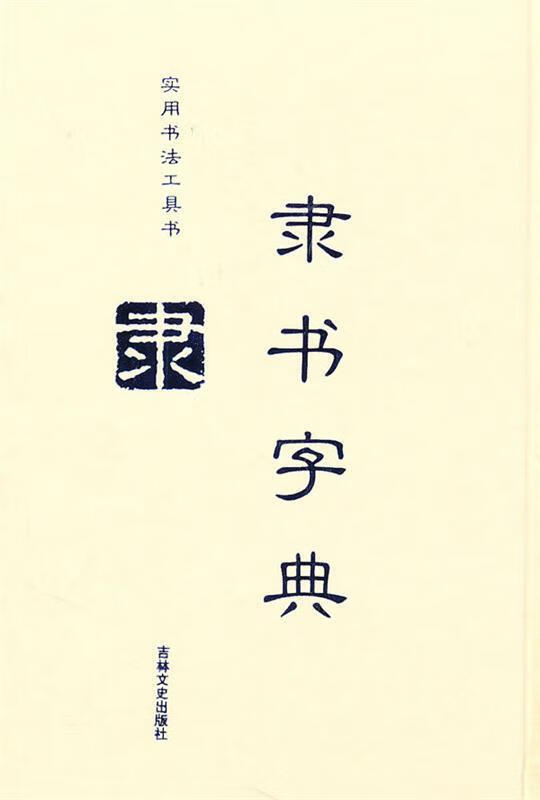 实用书法工具书
隶书字典
隶
吉林文史出版社